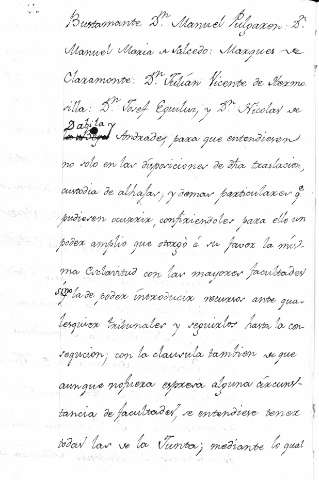 Bustamante Dn. Manuel Pulgaron Dn.
Manuel Maria de Salcedo: Marques de
Claramonte: Dn. Julian Vicente de Hermo
silla: Dn. Josef Eguiluz, y Dn. Nicolas de
Dabila y
Andrades, para que entendiesen
no solo en las disposiciones de dha traslacion,
custodia de alhajas, y demas particulares q.
pudiesen ocurrir, confiriendoles para ello un
poder amplio que otorgó á su favor la mis-
ma Esclavitud con las mayores facultades
y la de poder introducir recursos ante qua-
lesquier tribunales y seguirlos hasta la con-
segucion; con la clausula tambien de que
aunque nofuera espresa alguna circuns-
tancia de facultades, se entendiese tener
todas las de la Junta; mediante lo qual